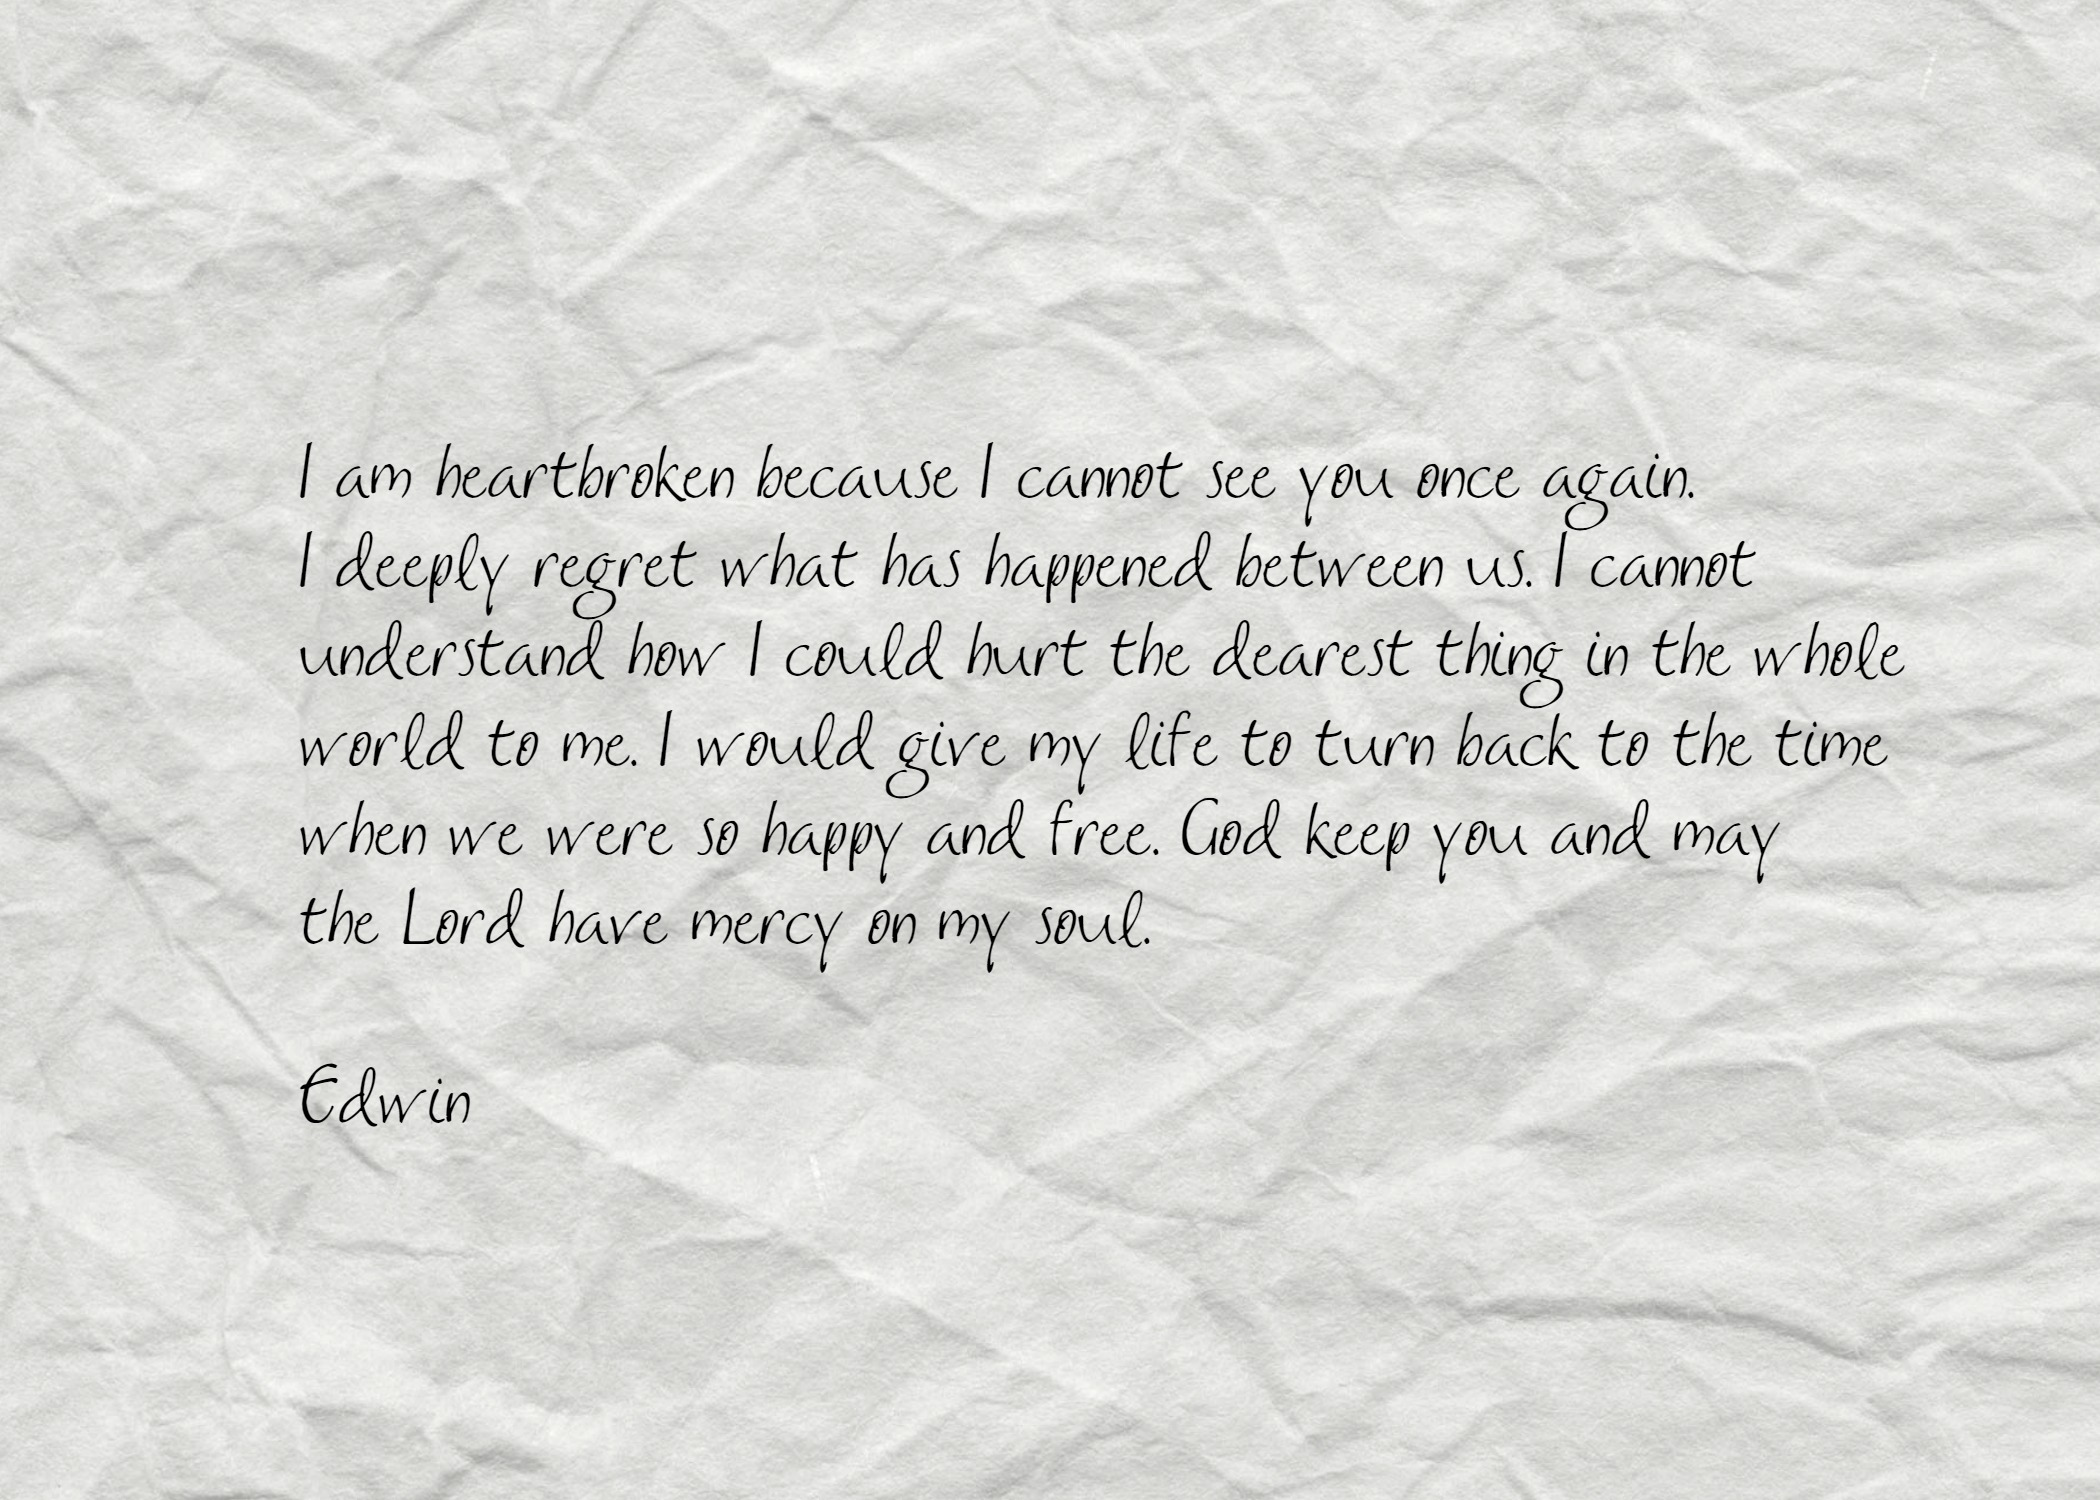 I am heartbroken because I cannot see you once again.
I deeply regret what has happened between us. I cannot
understand how I could hurt the dearest thing in the whole
world to me. I would give my life to turn back to the time
when we were so happy and free. God keep you and may
the Lord have mercy on my soul.
Edwin